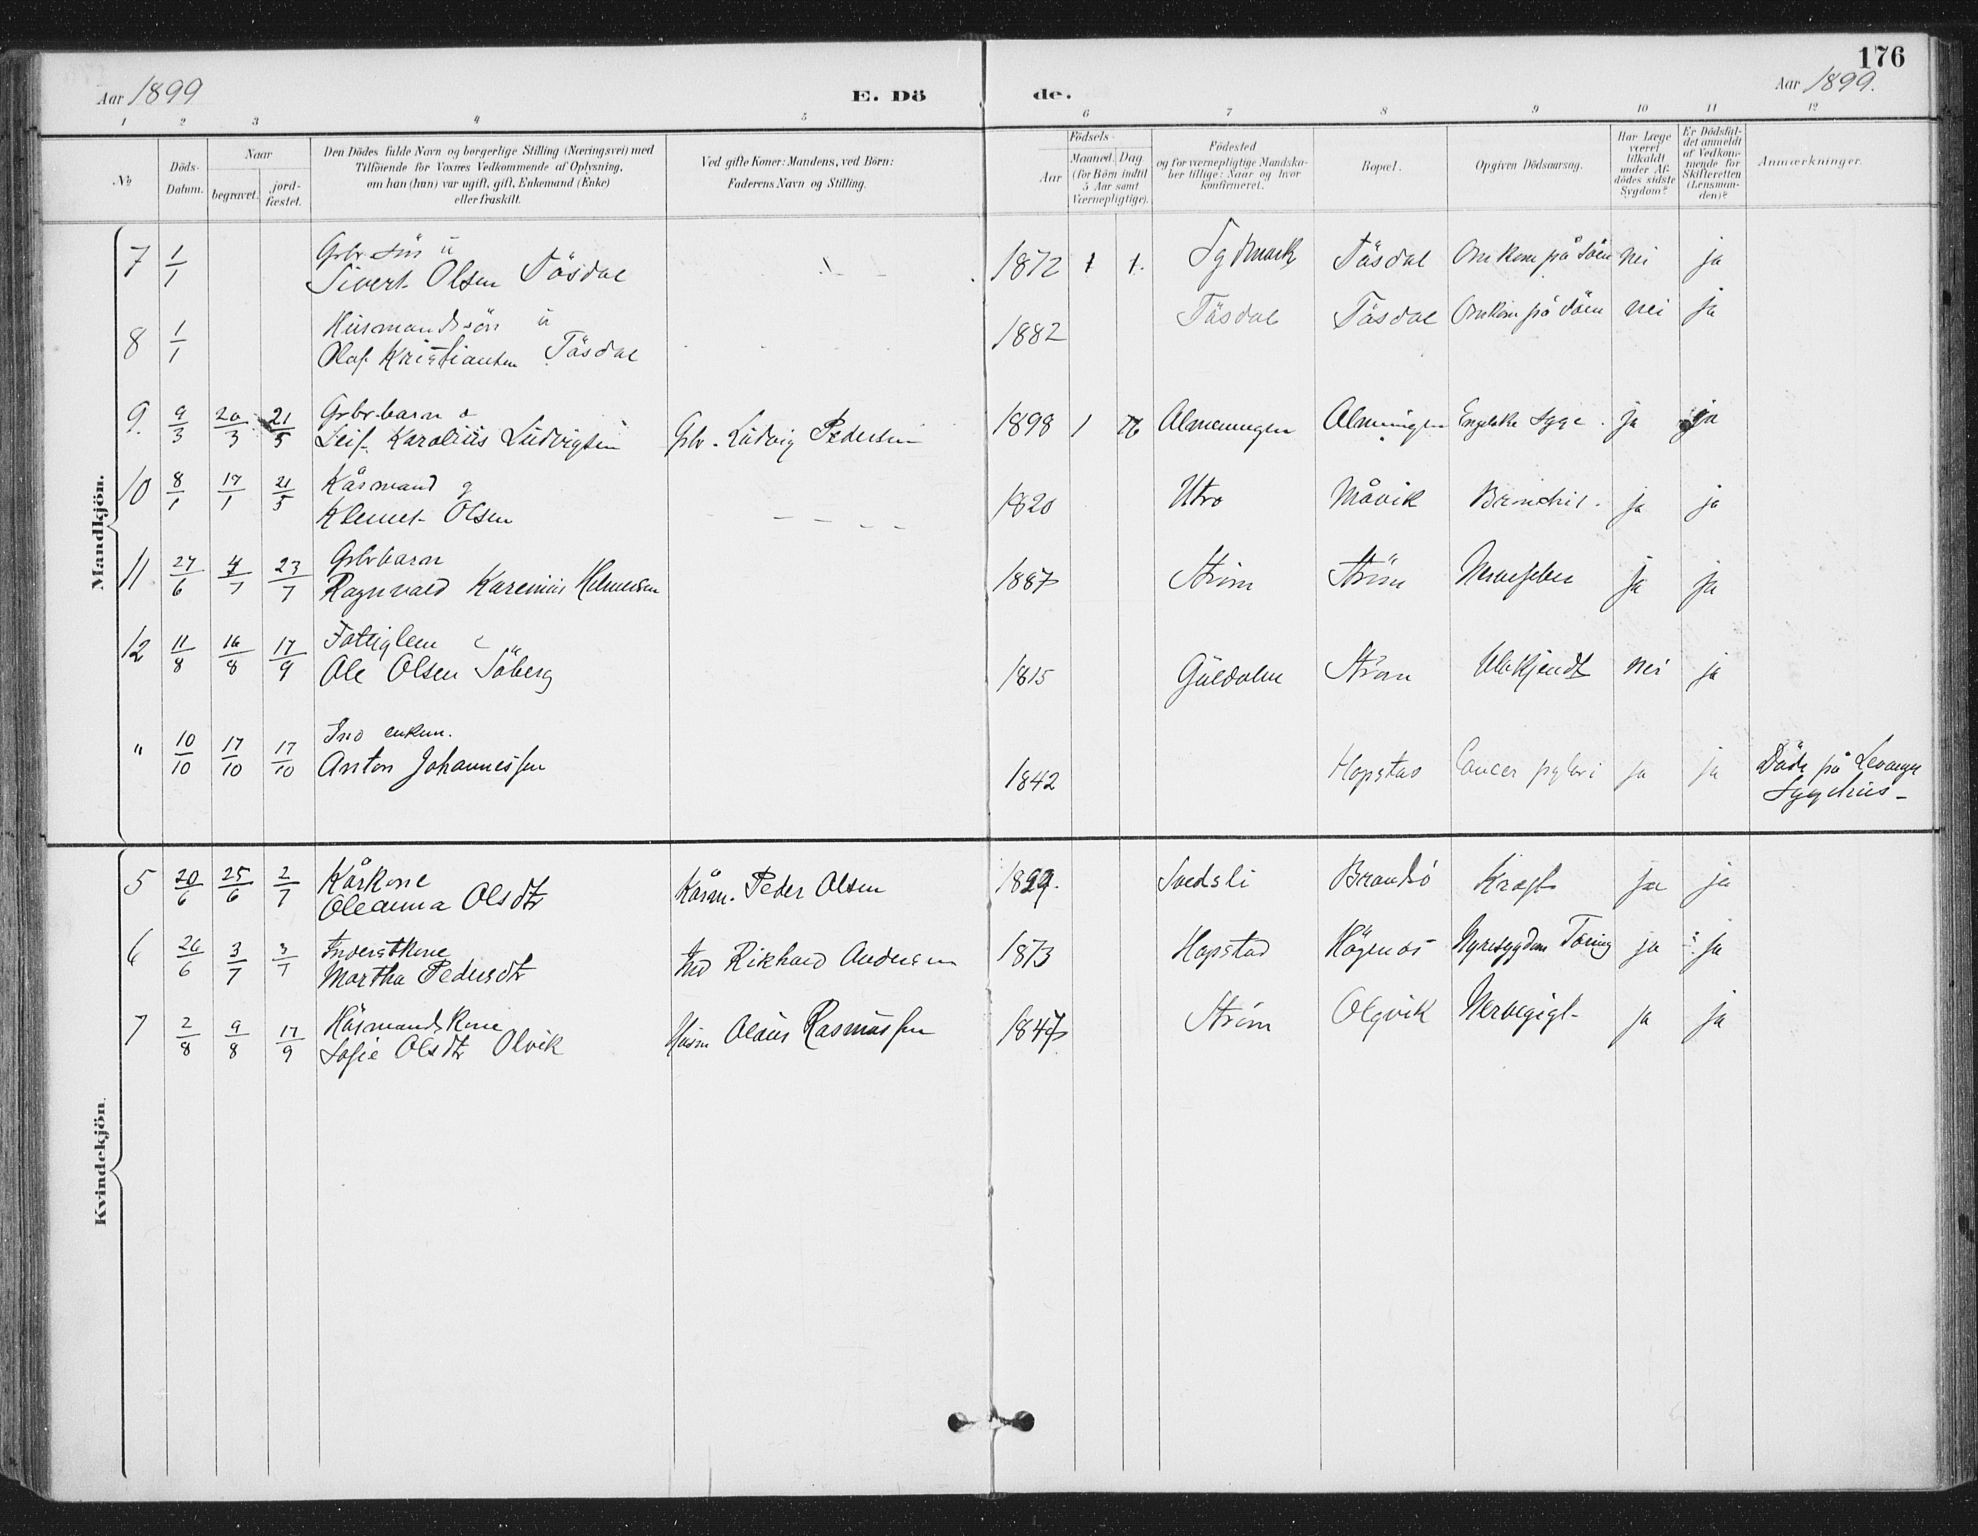 176
Aar 1899
E. Dö
de.
Aar 1899.
1 2 3 4 5 6 7 8 9 10 11 12
№
Döds-
Datum.
Naar
begravet.
jord-
fæstet.
Den Dödes fulde Navn og borgerlige Stilling (Næringsvei) med
Tilföiende for Voxnes Vedkommende af Oplysning,
om han (hun) var ugift, gift, Enkemand (Enke)
eller fraskilt.
Ved gifte Koner: Mandens, ved Börn:
Faderens Navn og Stilling.
Födsels-
Aar
Maaned. Dag
(for Börn indtil
5 Aar samt
Værnepligtige).
Födested
og for værnepligtige Mandska-
ber tillige: Naar og hvor
konfirmeret.
Bopæl.
Opgiven Dödsaarsag.
Har Læge
været
tilkaldt
under Af-
dödes sidste
Sygdom?
Er Dödsfal-
det anmeldt
af Vedkom-
mende for
Skifteretten
(Lensman-
den)?
Anmærkninger.
Mandkjön.
7 1/1 Gbr sön u
Sivert Olsen Tåsdal 1872 1 1. Tåsdal Omkom på Söen nei ja
8 1/1 Husmandssön u
Olaf Kristiansen Tåsdal 1882 Tåsdal Tåsdal Omkom på Söen nei ja
9. 9/3 20/3 21/5 Gbr barn
Leif Karolius Ludvigsen Gbr. Ludvig Pedersen 1898 1 Almenningen Almenningen Engelske Syge. ja ja
10 8/1 17/1 21/5 Kårmand g
Klemet Olsen 1820 Utro Måvik ja ja
11 27/6 4/7 23/7 Gbrbarn
Ragnvald Karenius 1887 Ström Ström ja ja
12 11/8 16/8 17/9 Fattiglem
Ole Olsen Söberg 1815 Ström Ubekjendt nei ja
" 10/10 17/10 17/10 Ind enkem.
Anton Johannessen 1842 Hopstad Cancer pylori ja ja Döde på Levanger
Sygehus
Kvindekjön.
5 20/6 25/6 2/7 Kårkone
Oleanna Olsdtr Kårm. Peder Olsen Svedsli Brandsö Kræft ja ja
6 26/6 3/7 3/7 Inderstkone
Martha Pedersdtr Ind Rikhard Andersen 1873 Hopstad Nyresygdom Tæring ja ja
7 2/8 9/8 17/9 Husmandskone
Sofie Olsdtr Olvik Husm Olaus Rasmussen 1847 Ström Olgvik Nervegigt ja ja